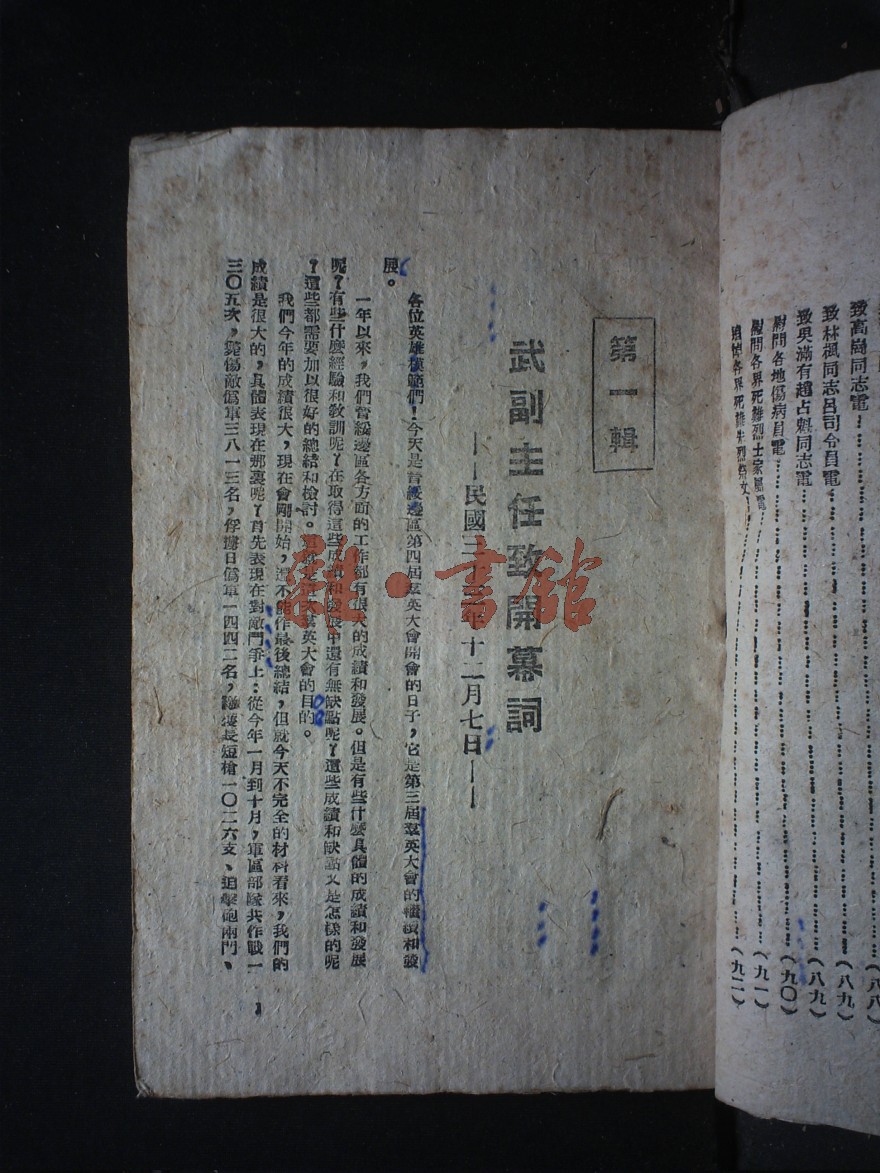 致高崗同志電
致林楓同志呂司令員電……(八九)
致吳滿有趙占魁同志電……(八九)
慰問各地傷病員電……(九〇)
慰問各界死難烈士家屬電……(九一)
各界死難先烈祭文……(九二)
第一輯
武副主任致開幕詞
——民國三十三年十二月七日——
各位英雄模範們！今天是晉綏邊區第四屆羣英大會開會的日子，它是第三屆羣英大會的繼續和發
展。
一年以來，我們晉綏邊區各方面的工作都有很大的成績和發展。但是有些什麼具體的成績和發展
呢？有些什麼經驗和敎訓呢？在取得這些成績和發展中還有無缺點呢？這些成績和缺點又是怎樣的呢
？這些都需要加以很好的總結和檢討。這就是這次羣英大會的目的。
我們今年的成績很大，現在會剛開始，還不能作最後總結，但就今天不完全的材料看來，我們的
成績是很大的，具體表現在那裏呢？首先表現在對敵鬥爭上：從今年一月到十月，軍區部隊共作戰一
三〇五次，斃傷敵僞軍三八一三名，俘擄日僞軍一四四二名，繳獲長短槍一〇二六支、迫擊砲兩門、
1
書舘